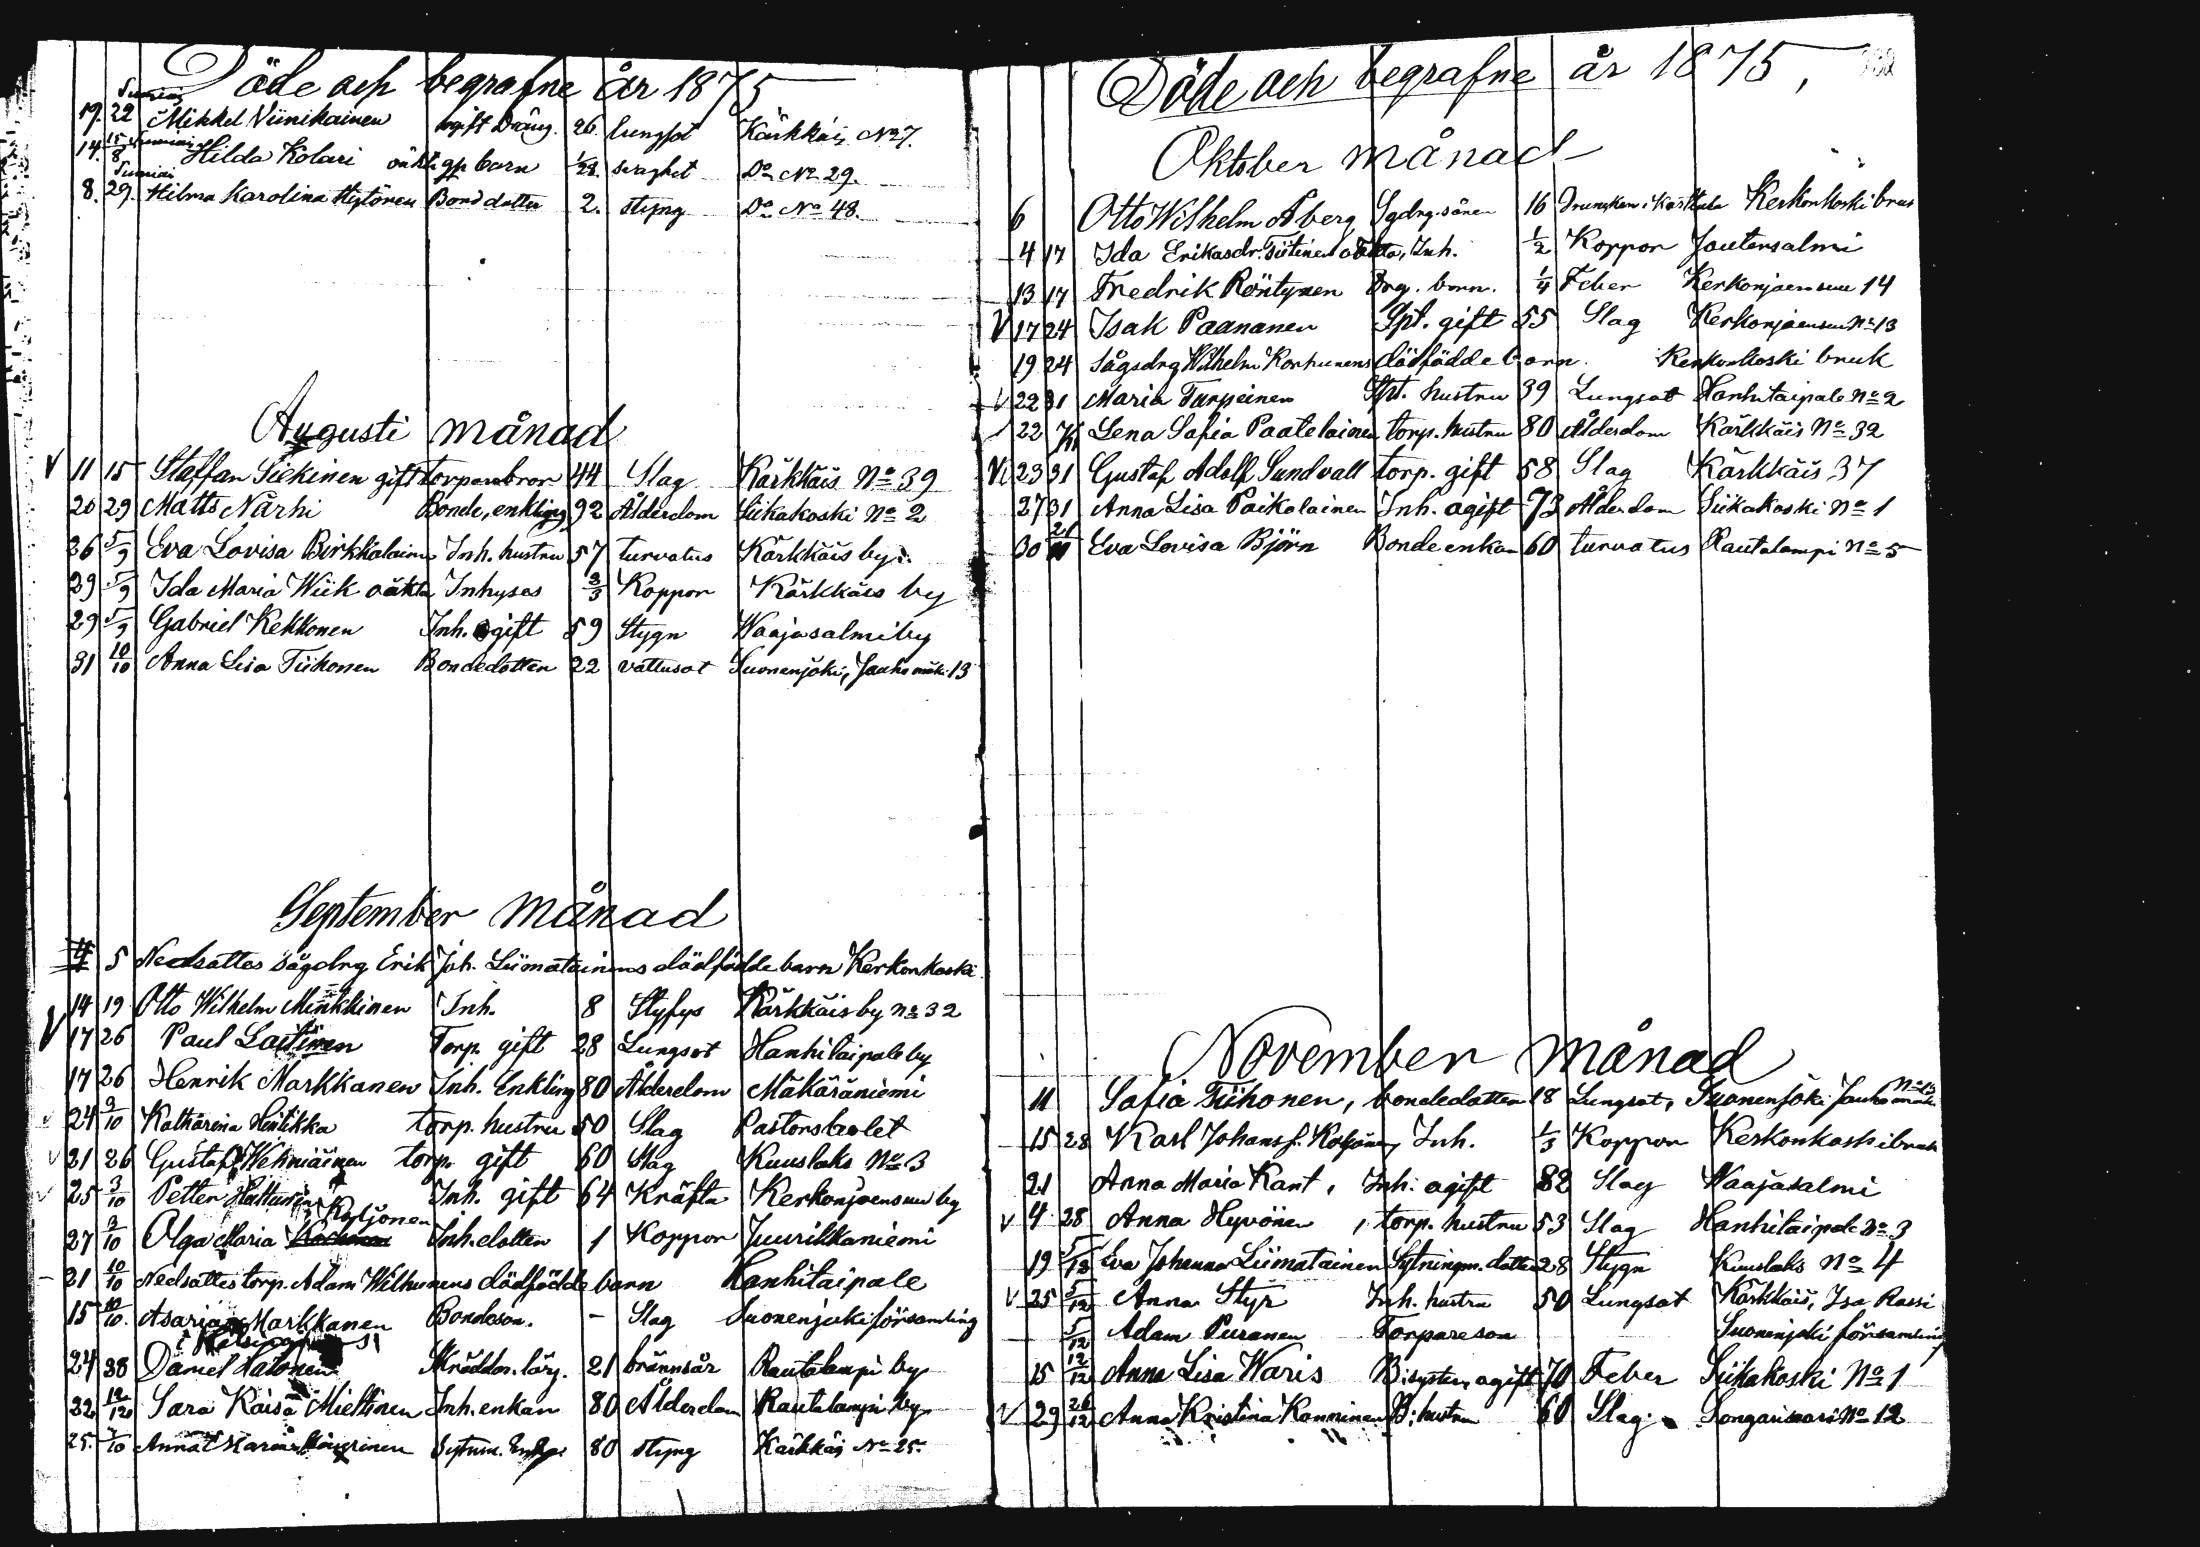 Döde och begrafne år 1875
Sumiais
19. 22 Mikkel Viinikainen ogift Dräng. 26. lungsot Kärkkäis No 27.
14. 15/8 Sumiais Hilda Kolari oäkta gp barn 1/28. svaghet Do No 29.
Sumiais
8. 29. Hilma Karolina Hytönen Bond dotter 2. styng Do No 48.
Augusti månad
V 11 15 Staffan Siekinen gift torparebror 44 Slag Kärkkäis No 39
20 29 Matts Närhi Bonde, enkling 92 Ålderdom Siikakoski No 2
26 5/9 Eva Lovisa Inh. hustru 57 turvatus Kärkkäis by
29 5/9 Ida Maria Wiik oäkta Inhyses 2/3 Koppor Kärkkäis by
29 5/9 Gabriel Kekkonen Inh. ogift 59 Stygn Waajasalmi by
31 10/10 Anna Lisa Tiihonen Bondedotter 22 vattusot Suonenjoki, Jauhomäki 13
September månad
4 5 Nedsattes sågdrg Erik Joh. Liimatainens dödfödde barn Kerkonkoski
14 19 Otto Wilhelm Minkkinen Inh. 8 Styfys Kärkkäis by No 32
V 17 26 Paul Laitinen Torp. gift 28 Lungsot Hanhitaipale by
17 26 Henrik Markkanen Inh. Enkling 80 Ålderdom Mäkäräniemi
v 24 3/10 Katharina Hintikka torp. hustru 50 Slag Pastorsbolet
v 21 26 Gustaf Wehniäinen torp. gift 60 Slag Kuuslaks No 3
v 25 3/10 Petter Hattunen Inh. gift 64 Kräfta Kerkonjoensuu by
Koljonen
27 3/10 Olga Maria Inh. dotter 1 Koppor Juurikkaniemi
- 21 10/10 Nedsattes torp. Adam Wilhunens dödfödde barn Hanhitaipale
15 10/10 Asarja Markkanen Bondeson. - Slag Suonenjoki församling
i Helsingfors
24 38 Daniel Skräddar. lärj. 21 brännsår Rautalampi by
22 12/12 Sara Kaisa Miettinen Inh. enkan 80 Ålderdom Rautalampi by
25. /10 Anna Maria Sytnin. 80 styng Kärkkäis No 25.
Döde och begrafne år 1875,
Oktober månad
6 Otto Wilhelm Åberg Sgdrg. sånen 16 Drunken i Karttula Kerkonkoski bruk
4 17 Ida Erikasdr. Tiitinen oäkta, Inh. 1/2 Koppor Joutensalmi
13 17 Fredrik Röntynen Drg. barn. 1/4 Feber Kerkonjoensuu 14
V 17 24 Isak Paananen Spt. gift 55 Slag Kerkonjoensuu No 13
19 24 Sågsdrg Wilhelm Korhunens dödfödde barn. Kerkonkoski bruk
v 22 31 Maria Turpeinen Spt. hustru 39 Lungsot Hanhitaipale No 2
22 Lena Sofia Paatelainen torp. hustru 80 Ålderdom Kärkkäis No 32
V 23 31 Gustaf Adolf Sundvall torp. gift 58 Slag Kärkkäis 37
27 31 Anna Lisa Paikolainen Inh. ogift 73 Ålderdom Siikakoski No 1
30 Eva Lovisa Björn Bonde enkan 60 turvatus Rautalampi No 5
November månad
11 Sofia Tiihonen, bondedotter 18 Lungsot, Suonenjoki Jauhomäki No 13
15 28 Karl Johans s. Koljonen, Inh. 1/3 Koppor Kerkonkoski bruk
21 Anna Maria Kant, Inh. ogift 82 Slag Waajasalmi
v 4 28 Anna Hyvönen, torp. hustru 53 Slag Hanhitaipale No 3
19 5/12 Eva Johanna Liimatainen Sytningm. dotter 28 Stygn Kuuslaks No 4
v 25 5/12 Anna Styr Inh. hustru 50 Lungsot Kärkkäis, Isa Rassi
5/12 Adam Puranen Torpareson Suonenjoki församling
15 12/12 Anna Lisa Waris B: syster, ogift 70 Feber Siikakoski No 1
v 29 26/12 Anna Kristina Konninen B: hustru 60 Slag Songarisaari No 12